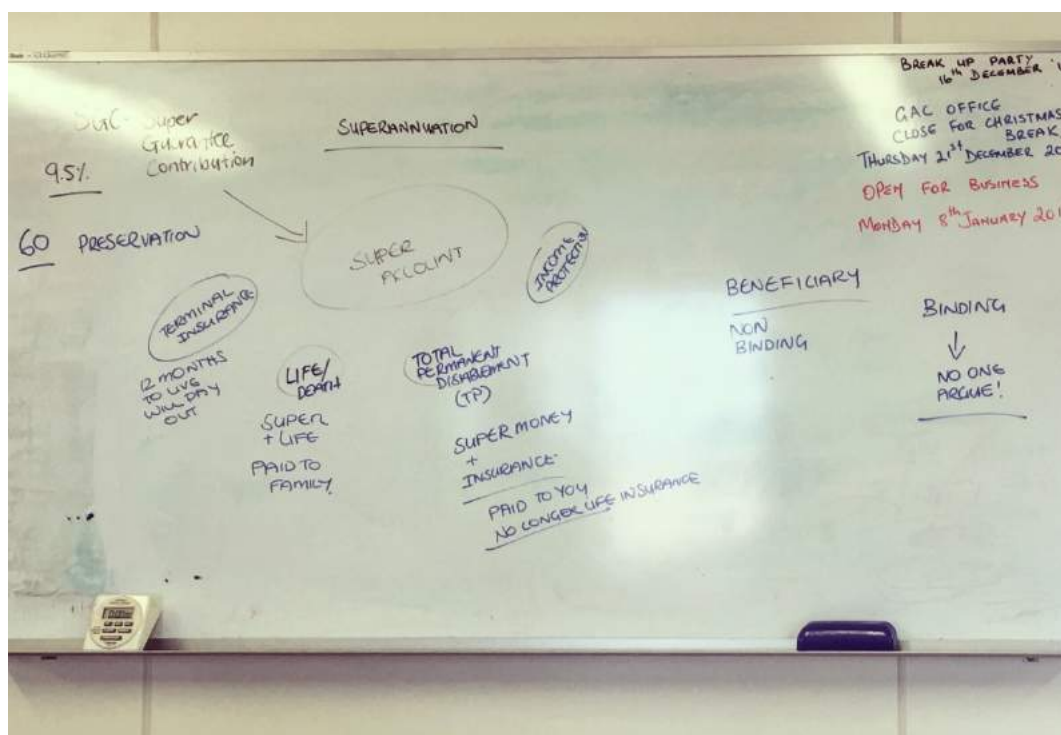 SGC - Super
Guarantee
Contribution
9.5%
SUPERANNUATION
60 PRESERVATION
SUPER
ACCOUNT
INCOME
PROTECTION
TERMINAL
INSURANCE
12 MONTHS
TO LIVE
WILL PAY
OUT
LIFE/
DEATH
SUPER
+ LIFE
PAID TO
FAMILY
TOTAL
PERMANENT
DISABLEMENT
(TP)
SUPER MONEY
+
INSURANCE
PAID TO YOU
NO LONGER LIFE INSURANCE
BENEFICIARY
NON
BINDING
BINDING
NO ONE
ARGUE!
BREAK UP PARTY
16th DECEMBER
GAC OFFICE
CLOSE FOR CHRISTMAS
BREAK
THURSDAY 21st DECEMBER 20
OPEN FOR BUSINESS
MONDAY 8th JANUARY 201